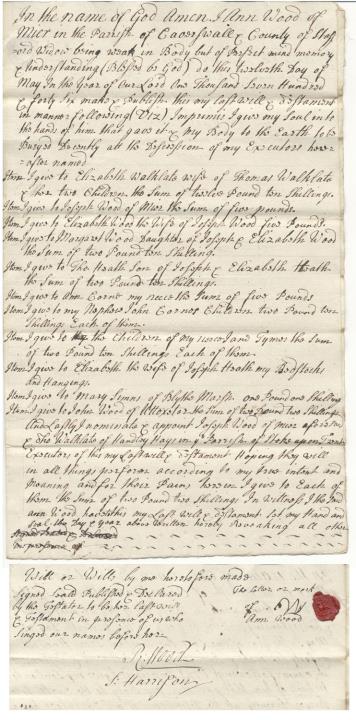 In the name of God Amen I Ann Wood of
Mier in the Parish of Caverswall & County of Staf
ord Widow being weak in Body but of Perfect mind memory
& Understanding (Blessed be God) do this twelvth Day of
May In the year of Our Lord One Thousand Seven Hundred
& forty Six make & Publish this my last will & Testament
in manner following (Viz) Imprimis I give my Soul into
the hands of him that gave it & my Body to the Earth to be
Buryed Decently att the Discression of my Executors here
after named
Item I give to Elizabeth Walklate wife of Thomas Walklate
& her two Children the Sum of twelve Pound ten Shillings.
Item I give to Joseph Wood of Mier the Sum of five pounds
Item I give to Elizabeth Wood the Wife of Joseph Wood five Pounds
Item I give to Margret Wood Daughter of Joseph & Elizabeth Wood
the Sum of two Pound ten Shilling.
Item I give to Tho Heath Son of Joseph & Elizabeth Heath
the Sum of two Pound ten Shillings.
Item I give to Ann Corne my neece the Sum of five Pounds
Item I give to my Nephew John Cornes Children two Pound ten
Shillings Each of them.
Item I give to the Children of my neece Jane Tymes the Sum
of two Pound ten Shillings Each of them
Item I give to Elizabeth the Wife of Joseph Heath my Bedstocks
and Hangings.
Item I give to Mary Simms of Blythe Marsh one Pound one Shilling
Item I give to John Wood of the Sum of two Pound two Shillings
And Lastly I nominate & appoint Joseph Wood of Mier aforesaid
& Tho Walklate of in Parrish of Stoke upon Trent
Executors of this my Last will & Testament Hoping they will
in all things perform according to my true intent and
Meaning and for their Pains herein I give to Each of
them the Sum of two Pound two Shillings In Witness I the said
Ann Wood have to this my Last will & Testament Set my Hand and
Seal the Day & year above Written hereby Revoaking all other
in presence of
Will or Wills by me heretofore made
Signed Seald Published & Declared
by the Testator to be her Last will
& Testament in presence of us who
Singed our names before her
The Letter or mark
of W
Ann Wood
R: Wood
S: Harrison